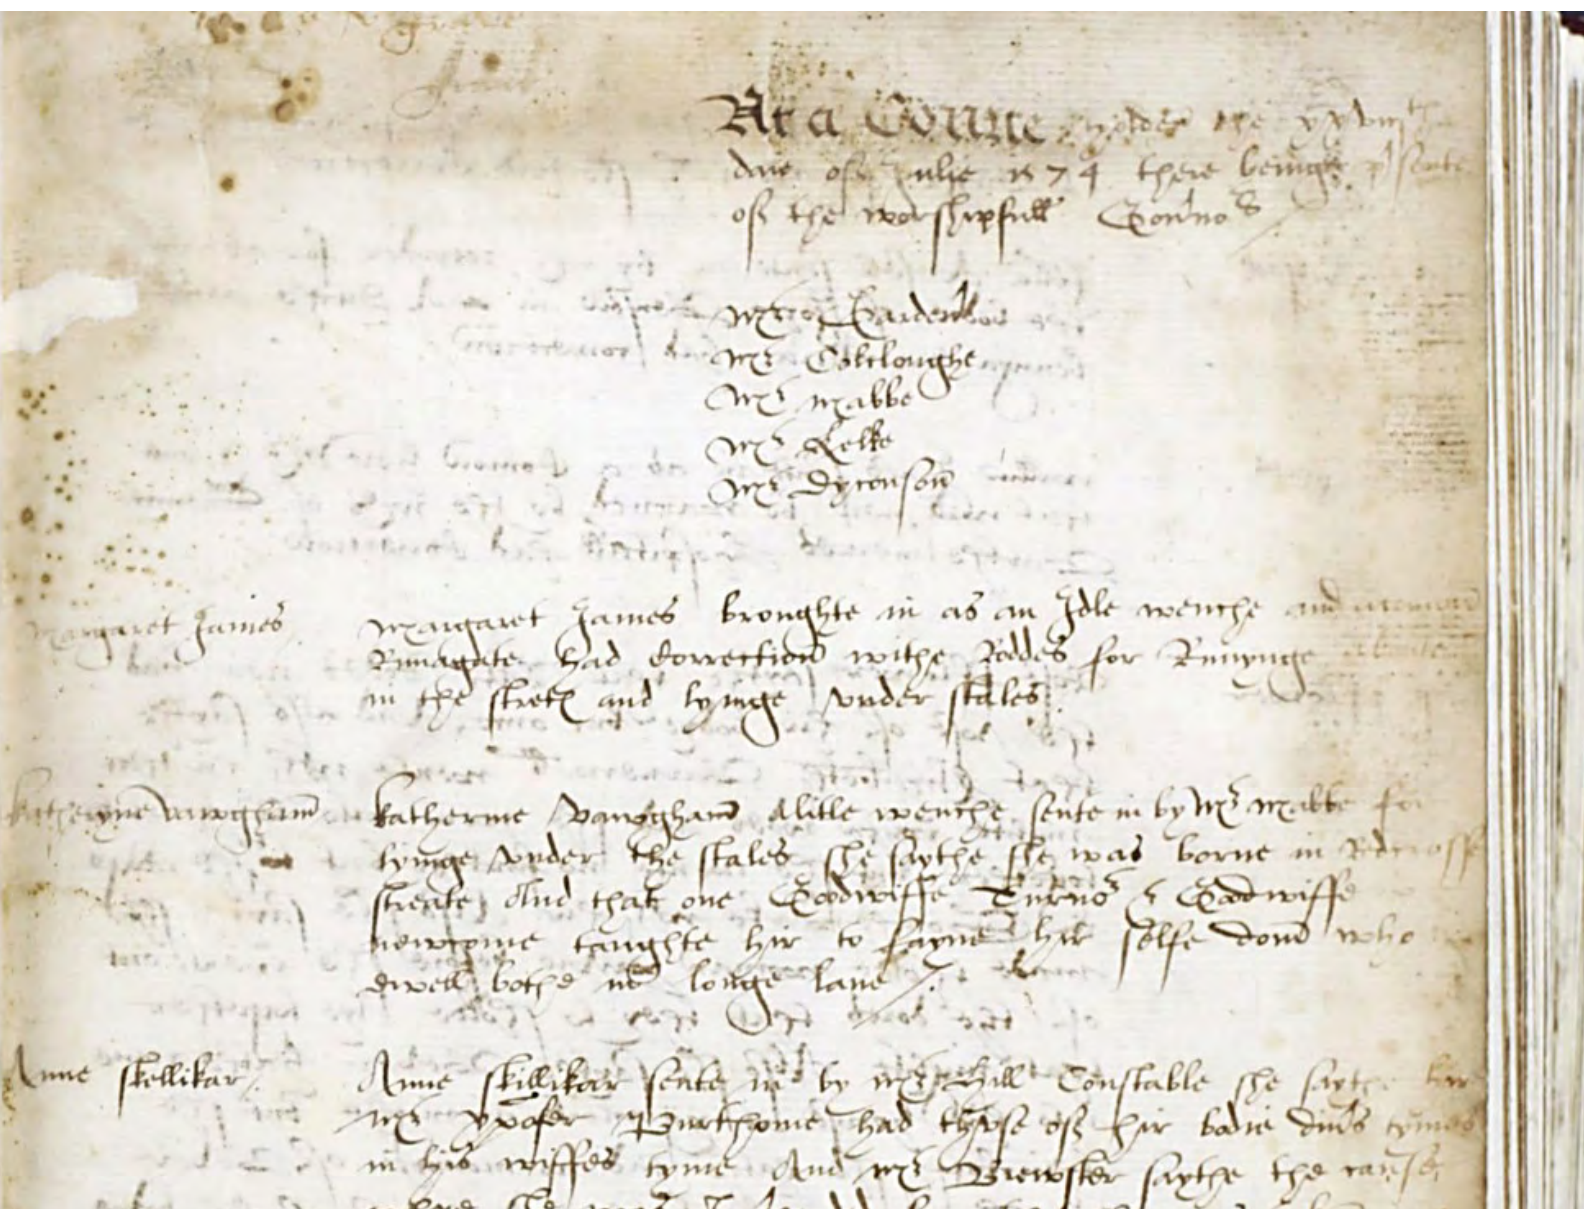 At a Courte holden the xxviijth
daie of Julie 1574 there beinge p'sente
of the worshipfull Gou'no's
Mr
Mr Colcloughe
Mr Mabbe
Mr Kelke
Mr Dyconson
Margaret James
Margaret James broughte in as an Idle wenche and
Runagate had Correction withe Roddes for Runynge
in the stretes and lyinge vnder stales
Katheryne Vawghann
Katherine Vawghann A litle wenche sente in by Mr Mabbe for
lyinge vnder the stales she saythe she was borne in Redcrosse
streate And that one Goodwiffe Turno' & Goodwiffe
newcome taughte hir to fayne hir selfe dom who
dwell bothe in longe lane
Anne Skellikar
Anne Skillikar sente in by Mr Hill Constable she saythe hir
Mr xpofer Burthome had thvse of hir bodie diu's tymes
in his wiffes tyme And Mr Brewster saythe the cause